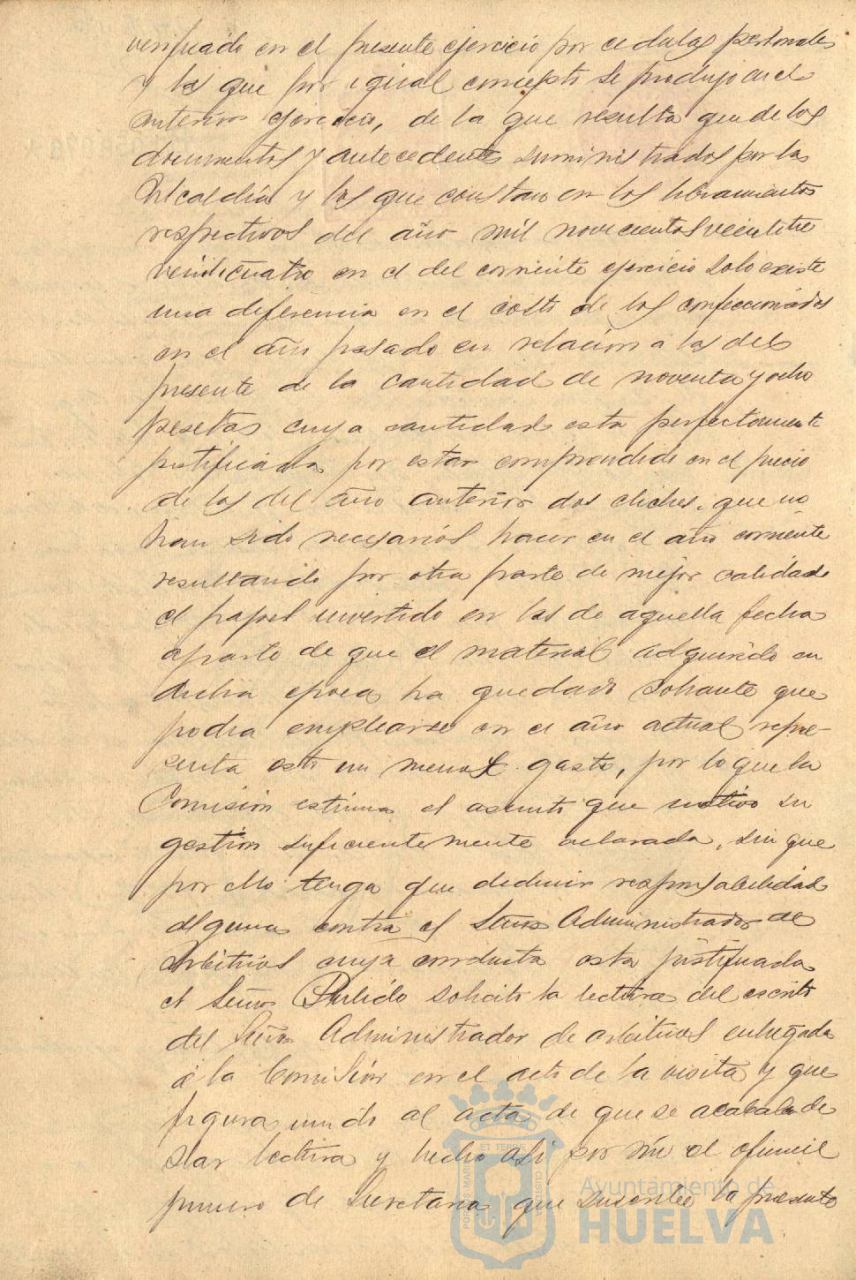 verificado en el presente ejercicio por cedulas personales
y los que por igual concepto se produjo en el
anterior ejercicio, de la que resulta que de los
documentos y antecedentes suministrados por la
Alcaldia y los que constan en los libramientos
respectivos del año mil novecientos veintitres
veinticuatro en el del corriente ejercicio solo existe
una diferencia en el costo de los confeccionados
en el año pasado en relacion a los del
presente de la cantidad de noventa y ocho
pesetas cuya cantidad esta perfectamente
justificada por estar comprendido en el precio
de los del año anterior dos cliches, que no
han sido necesarios hacer en el año corriente
resultando por otra parte de mejor calidad
el papel invertido en las de aquella fecha
aparte de que el material adquirido en
dicha epoca ha quedado sobrante que
podra emplearse en el año actual repre-
senta esto un menor gasto, por lo que la
Comision estima el asunto que motivo su
gestion suficientemente aclarada, sin que
por ello tenga que deducir responsabilidad
alguna contra el Señor Administrador de
Arbitrios cuya conducta esta justificada
el Señor Pulido solicito la lectura del escrito
del Señor Administrador de arbitrios entregada
á la Comisión en el acto de la visita y que
figura unido al acta de que se acababa de
dar lectura y hecho asi por mi el oficial
primero de Secretaria que suscribe la presente
Ayuntamiento de
HUELVA